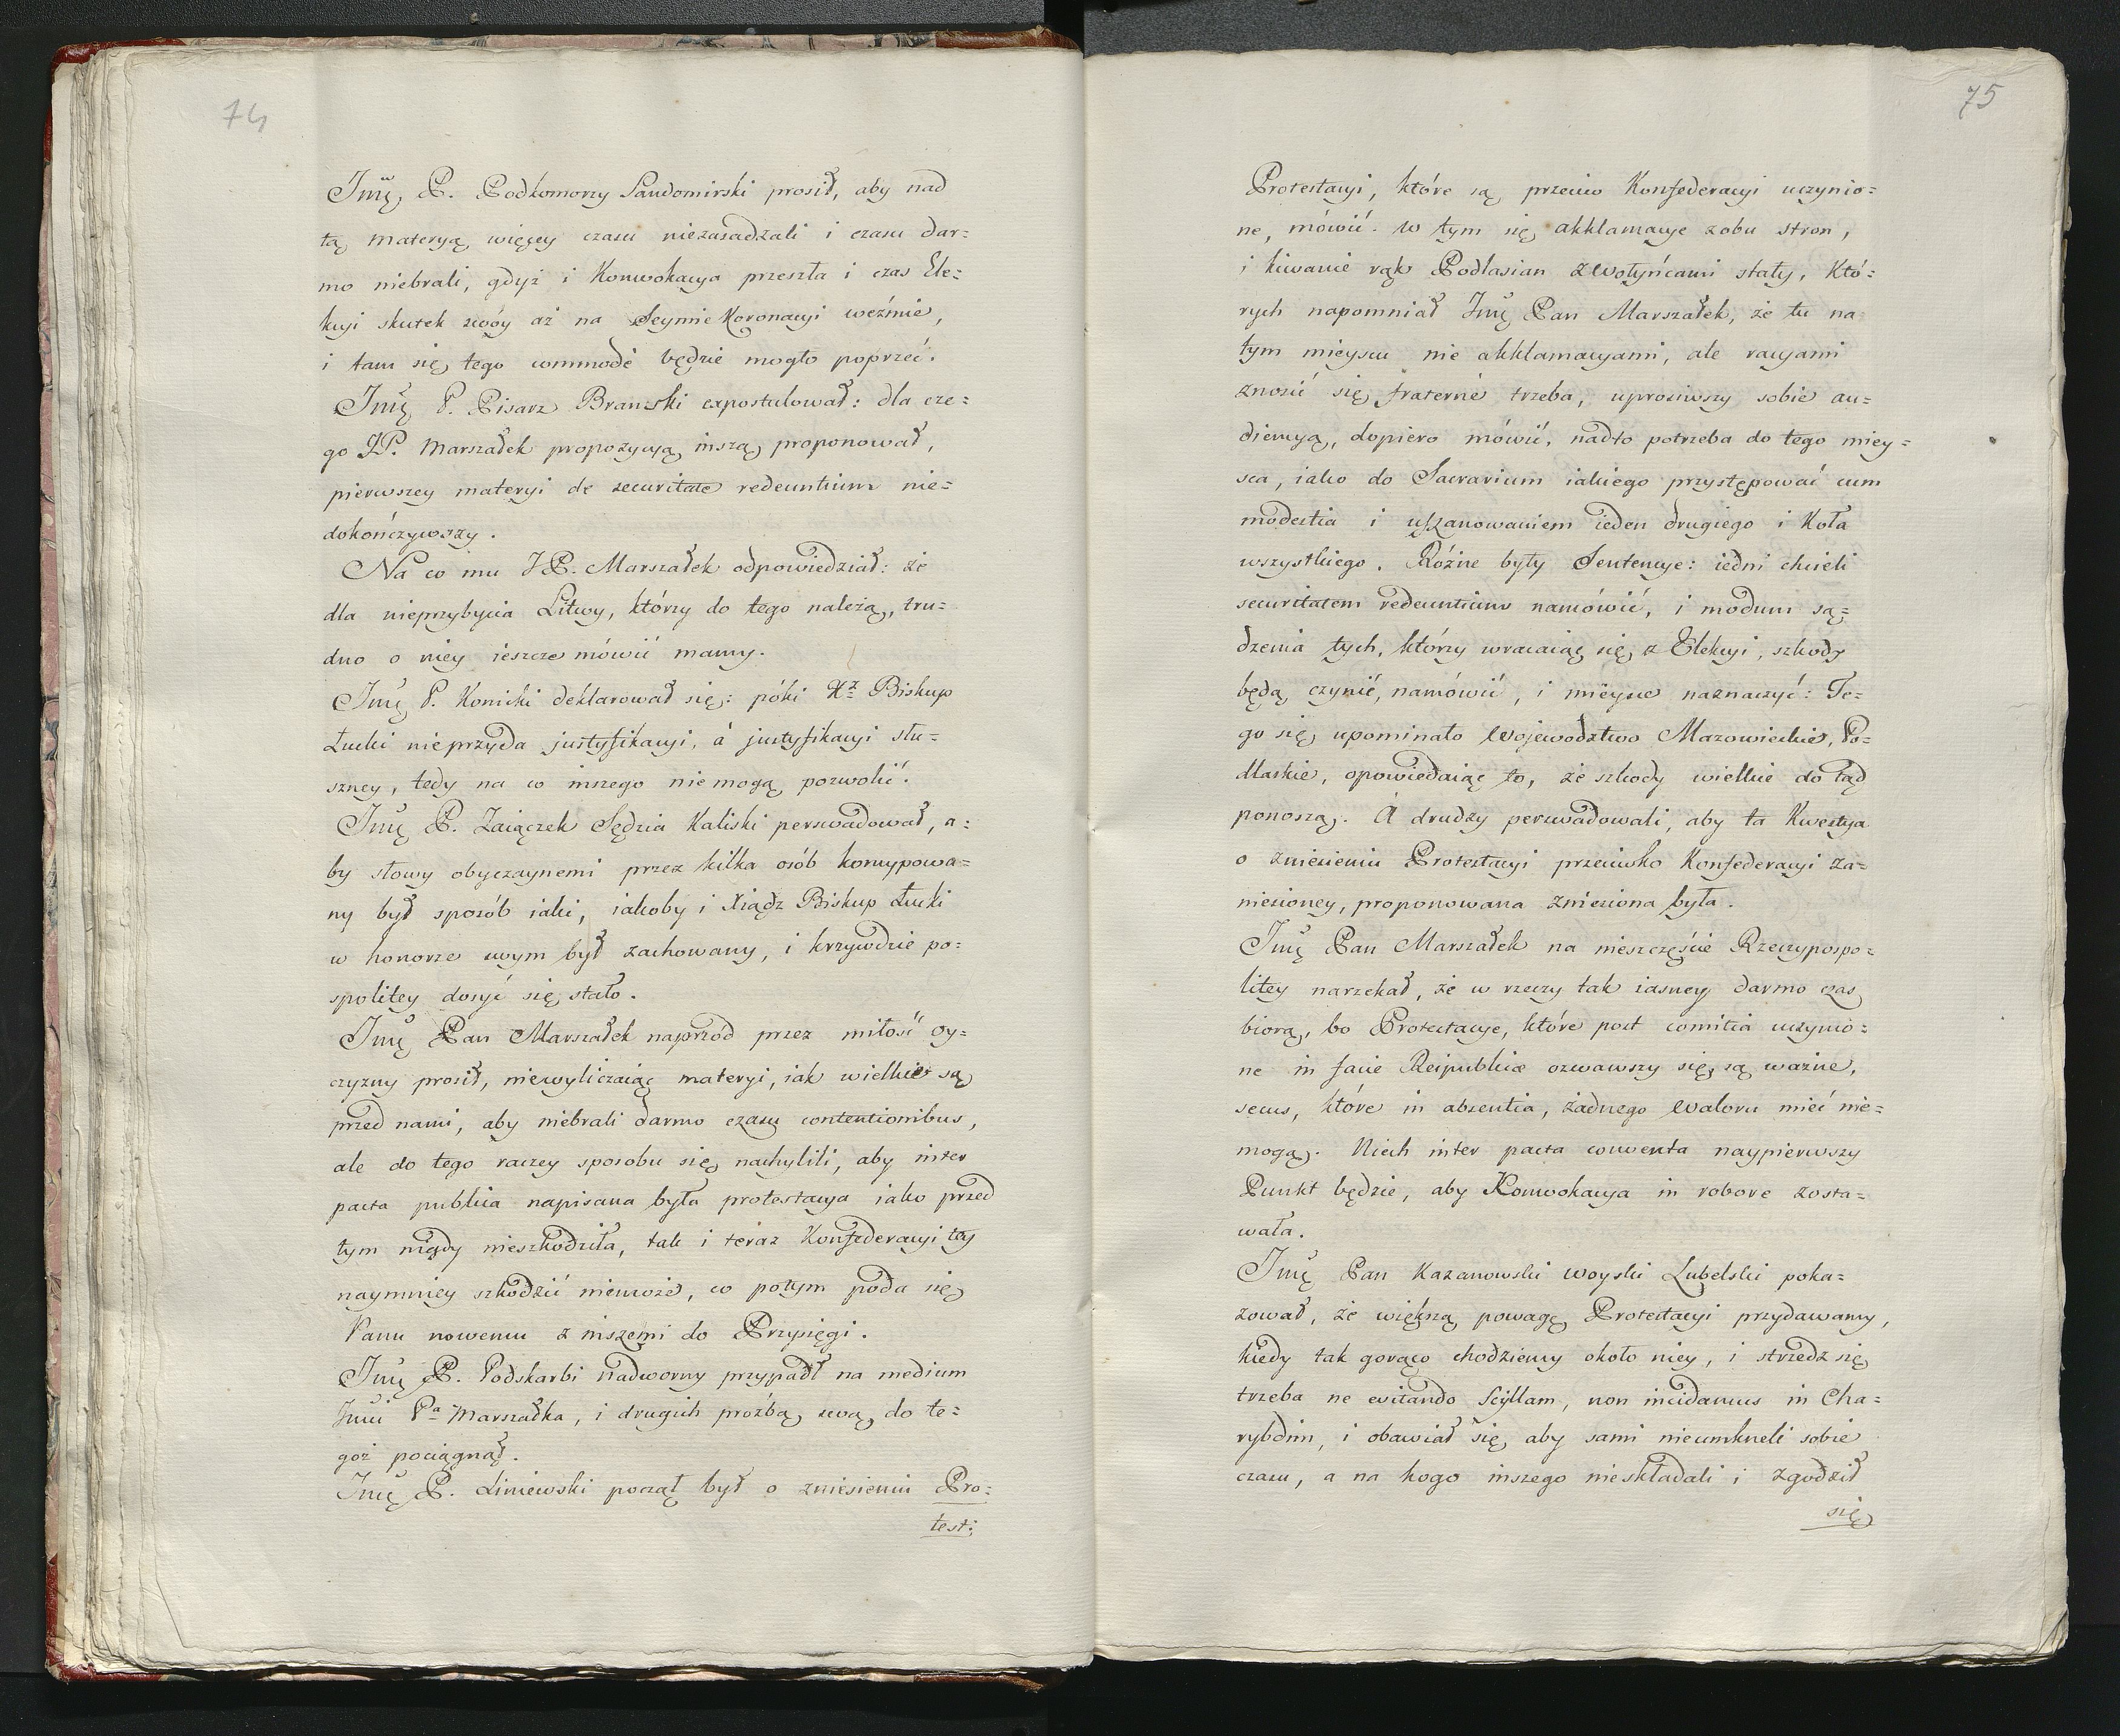 74
Jmę P. Podkomorzy Sandomirski prosił, aby nad
tą materyą więcey czasu niezasadzali i czasu dar=
mo niebrali, gdyż i Konwokacya przeszła i czas Ele=
kcyi skutek swóy aż na Seymie Koronacyi weźmie,
i tam się tego commodè będzie mogło poprzeć.
Jmę P. Pisarz Branski expostulował: dla cze=
go JP. Marszałek propozycyą inszą proponował,
pierwszey materyi de securitate redeuntium nie=
dokończywszy.
Na co mu JP. Marszałek odpowiedział: że
dla nieprzybycia Litwy, którzy do tego należą, tru=
dno o niey ieszcze mówić mamy.
Jmę P. Konicki deklarował się: póki Xz Biskup
Łucki nieprzyda justyfikacyi, á justyfikacyi słu=
szney, tedy na co inszego niemogą pozwolić.
Jmę P. Zaiączek Sędzia Kaliski perswadował, a=
by słowy obyczaynemi przez kilka osób korrypowa=
ny był sposób iaki, iakoby i Xiądz Biskup Łucki
w honorze swym był zachowany, i krzywdzie po=
spolitey dosyć się stało.
Jmę Pan Marszałek naprzód przez miłość Oy=
czyzny prosił, niewyliczaiąc materyi, iak wielkie są
przed nami, aby niebrali darmo czasu contentionibus,
ale do tego raczey sposobu się nachylili, aby inter
pacta publica napisana była protestacya iako przed
tym nigdy nieszkodziła, tak i teraz Konfederacyi tey
naymniey szkodzić niemoże, co potym poda się
Panu nowemu z inszemi do Przysięgi.
Jmę P. Podskarbi Nadworny przypadł na medium
Jmci Pa Marszałka, i drugich prośbą swą do te=
goż pociągnął.
Jmę P. Liniewski począł był o zniesieniu Pro=
test:
75
Protestacyi, które są przeciw Konfederacyi uczynio=
ne, mówić. w tym się akklamacye zobu stron,
i kiwanie rąk Podlasian z Wołyńcami stały, Któ=
rych napomniał Jmę Pan Marszałek, że tu na
tym mieyscu nie akklamacyami, ale racyami
znosić się fraternè trzeba, uprosiwszy sobie au=
diencyą, dopiero mówić, nadto potrzeba do tego miey=
sca, iako do Sacrarium iakiego przystępować cum
modestia i uszanowaniem ieden drugiego i Koła
wszystkiego. Różne były Sentencye: iedni chcieli
securitatem redeuntium namówić, i modum są=
dzenia tych, którzy wracaiąc się z Elekcyi, szkody
będą czynić, namówić, i mieysce naznaczyć: Te=
go się upominało Województwo Mazowieckie, Po=
dlaskie, opowiedaiąc to, że szkody wielkie do tąd
ponoszą. A drudzy perswadowali, aby ta Kwestya
o zniesieniu Protestacyi przeciwko Konfederacyi za=
niesioney, proponowana zniesiona była.
Jmę Pan Marszałek na nieszczęście Rzeczypospo=
litey narzekał, że w rzeczy tak iasney darmo czas
biorą, bo Protestacye, które post comitia uczynio=
ne in facie Reipublicæ ozwawszy się, są ważne,
secus, które in absentia, żadnego Waloru mieć nie=
mogą. Niech inter pacta conventa naypierwszy
Punkt będzie, aby Konwokacya in robore zosta=
wała.
Jmę Pan Kazanowski Woyski Lubelski poka=
zował, że większą powagę Protestacyi przydawamy,
kiedy tak gorąco chodziemy około niey, i strzedz się
trzeba ne evitando Scyllam, non incidamus in Cha=
rybdim, i obawiał się aby sami nieumkneli sobie
czasu, a na kogo inszego nieskładali i zgodził
się